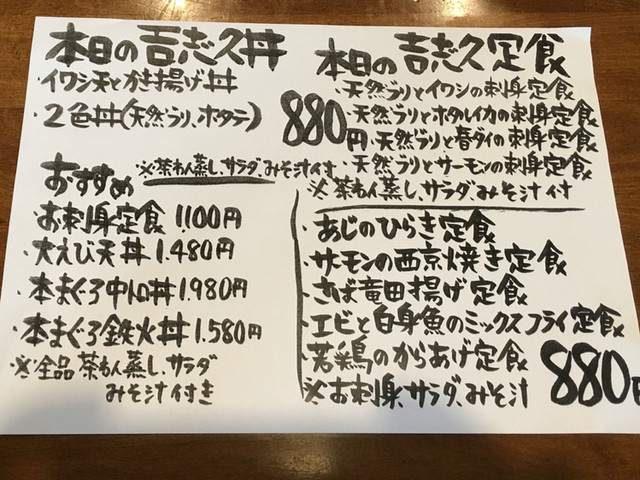 本日の吉志久丼
・イワシ天とかき揚げ丼
・2色丼(天然ブリ、ホタテ)
880円
※茶わん蒸し、サラダ、みそ汁付
おすすめ
・お刺身定食 1.100円
・大えび天丼 1.480円
・本まぐろ中トロ丼 1.980円
・本まぐろ鉄火丼 1.580円
※全品茶わん蒸し、サラダ
みそ汁付き
本日の吉志久定食
・天然ブリとイワシの刺身定食
・天然ブリとホタルイカの刺身定食
・天然ブリと春ダイの刺身定食
・天然ブリとサーモンの刺身定食
※茶わん蒸し、サラダ、みそ汁付
・あじのひらき定食
・サーモンの西京焼き定食
・さば竜田揚げ定食
・エビと白身魚のミックスフライ定食
・若鶏のからあげ定食
※お刺身、サラダ、みそ汁
880円